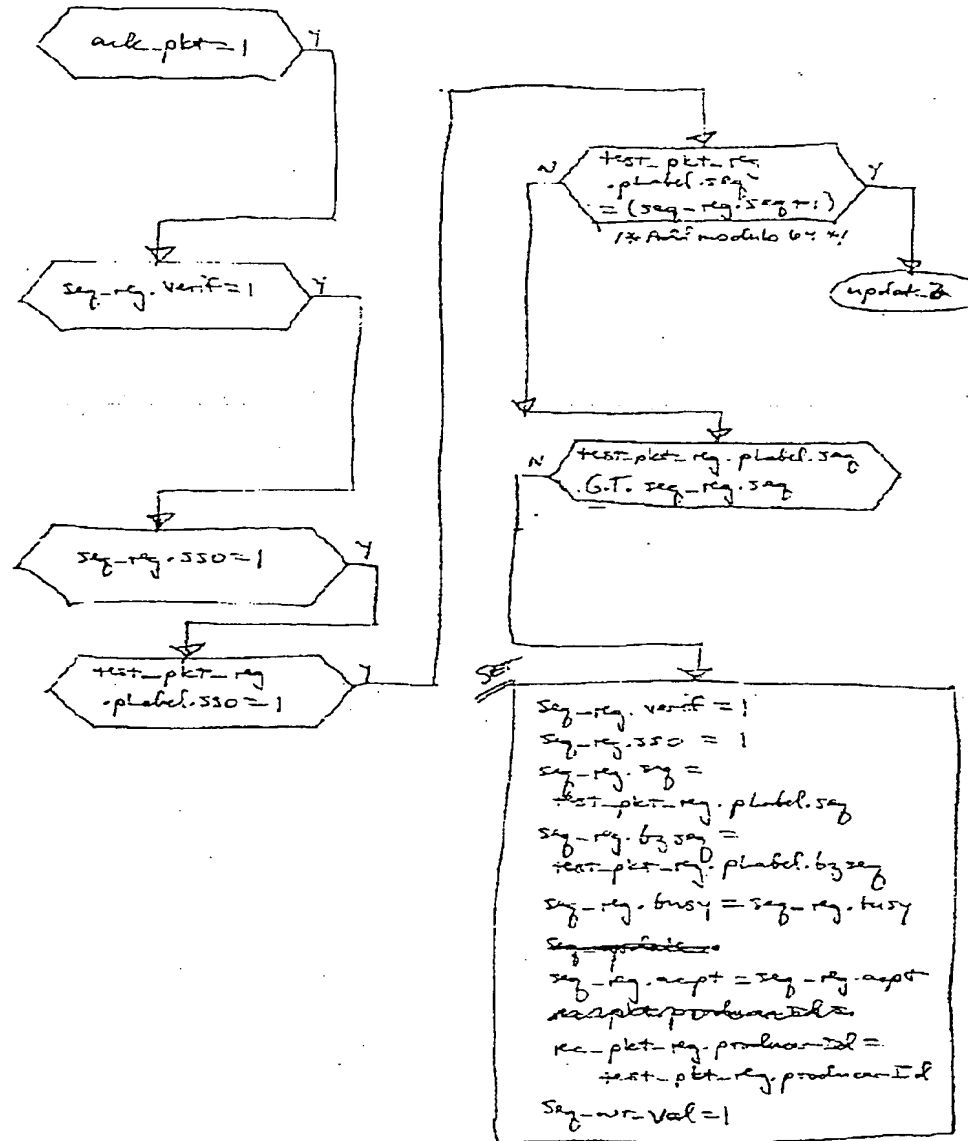 ack_pkt=1
Y
seq_reg.verif=1
Y
seq_reg.sso=1
Y
test_pkt_reg
.plabel.sso=1
Y
test_pkt_reg
.plabel.seq
= (seq_reg.seq+1)
N
Y
modulo 64 */
test_pkt_reg.plabel.seq
.G.T. seq_reg.seq
N
SET
seq_reg.verif=1
seq_reg.sso = 1
seq_reg.seq =
test_pkt_reg.plabel.seq
seq_reg.bzseq =
test_pkt_reg.plabel.bzseq
seq_reg.busy = seq_reg.busy
seq_reg.acpt = seq_reg.acpt
rec_pkt_reg.producerId =
test_pkt_reg.producerId
seq_wr_val=1